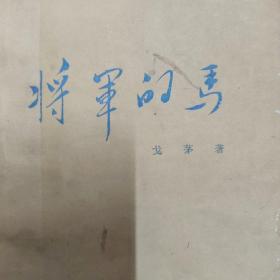 将军的马
戈茅著